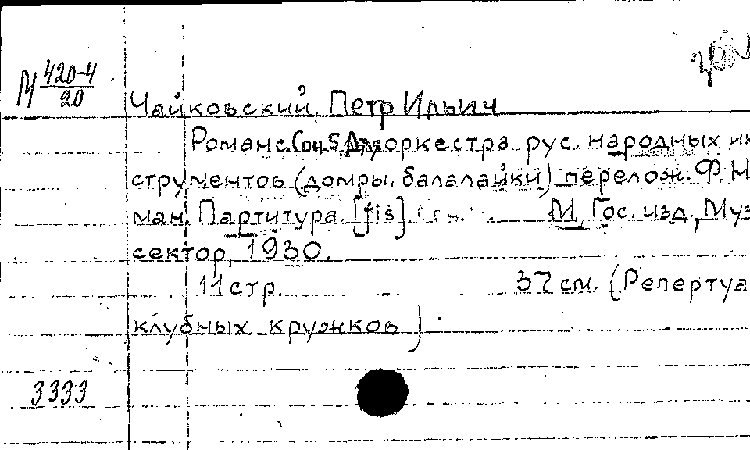 М 420-4
20
Чайковский, Петр Ильич
Романс. Соч. 5 Для оркестра рус. народных ин
струментов (домры, балалайки) перелож. Ф. Н
ман. Партитура. [fis]. М., Гос. изд., Муз
сектор, 1930.
11 стр. 37 см. (Репертуа
клубных кружков)
3333